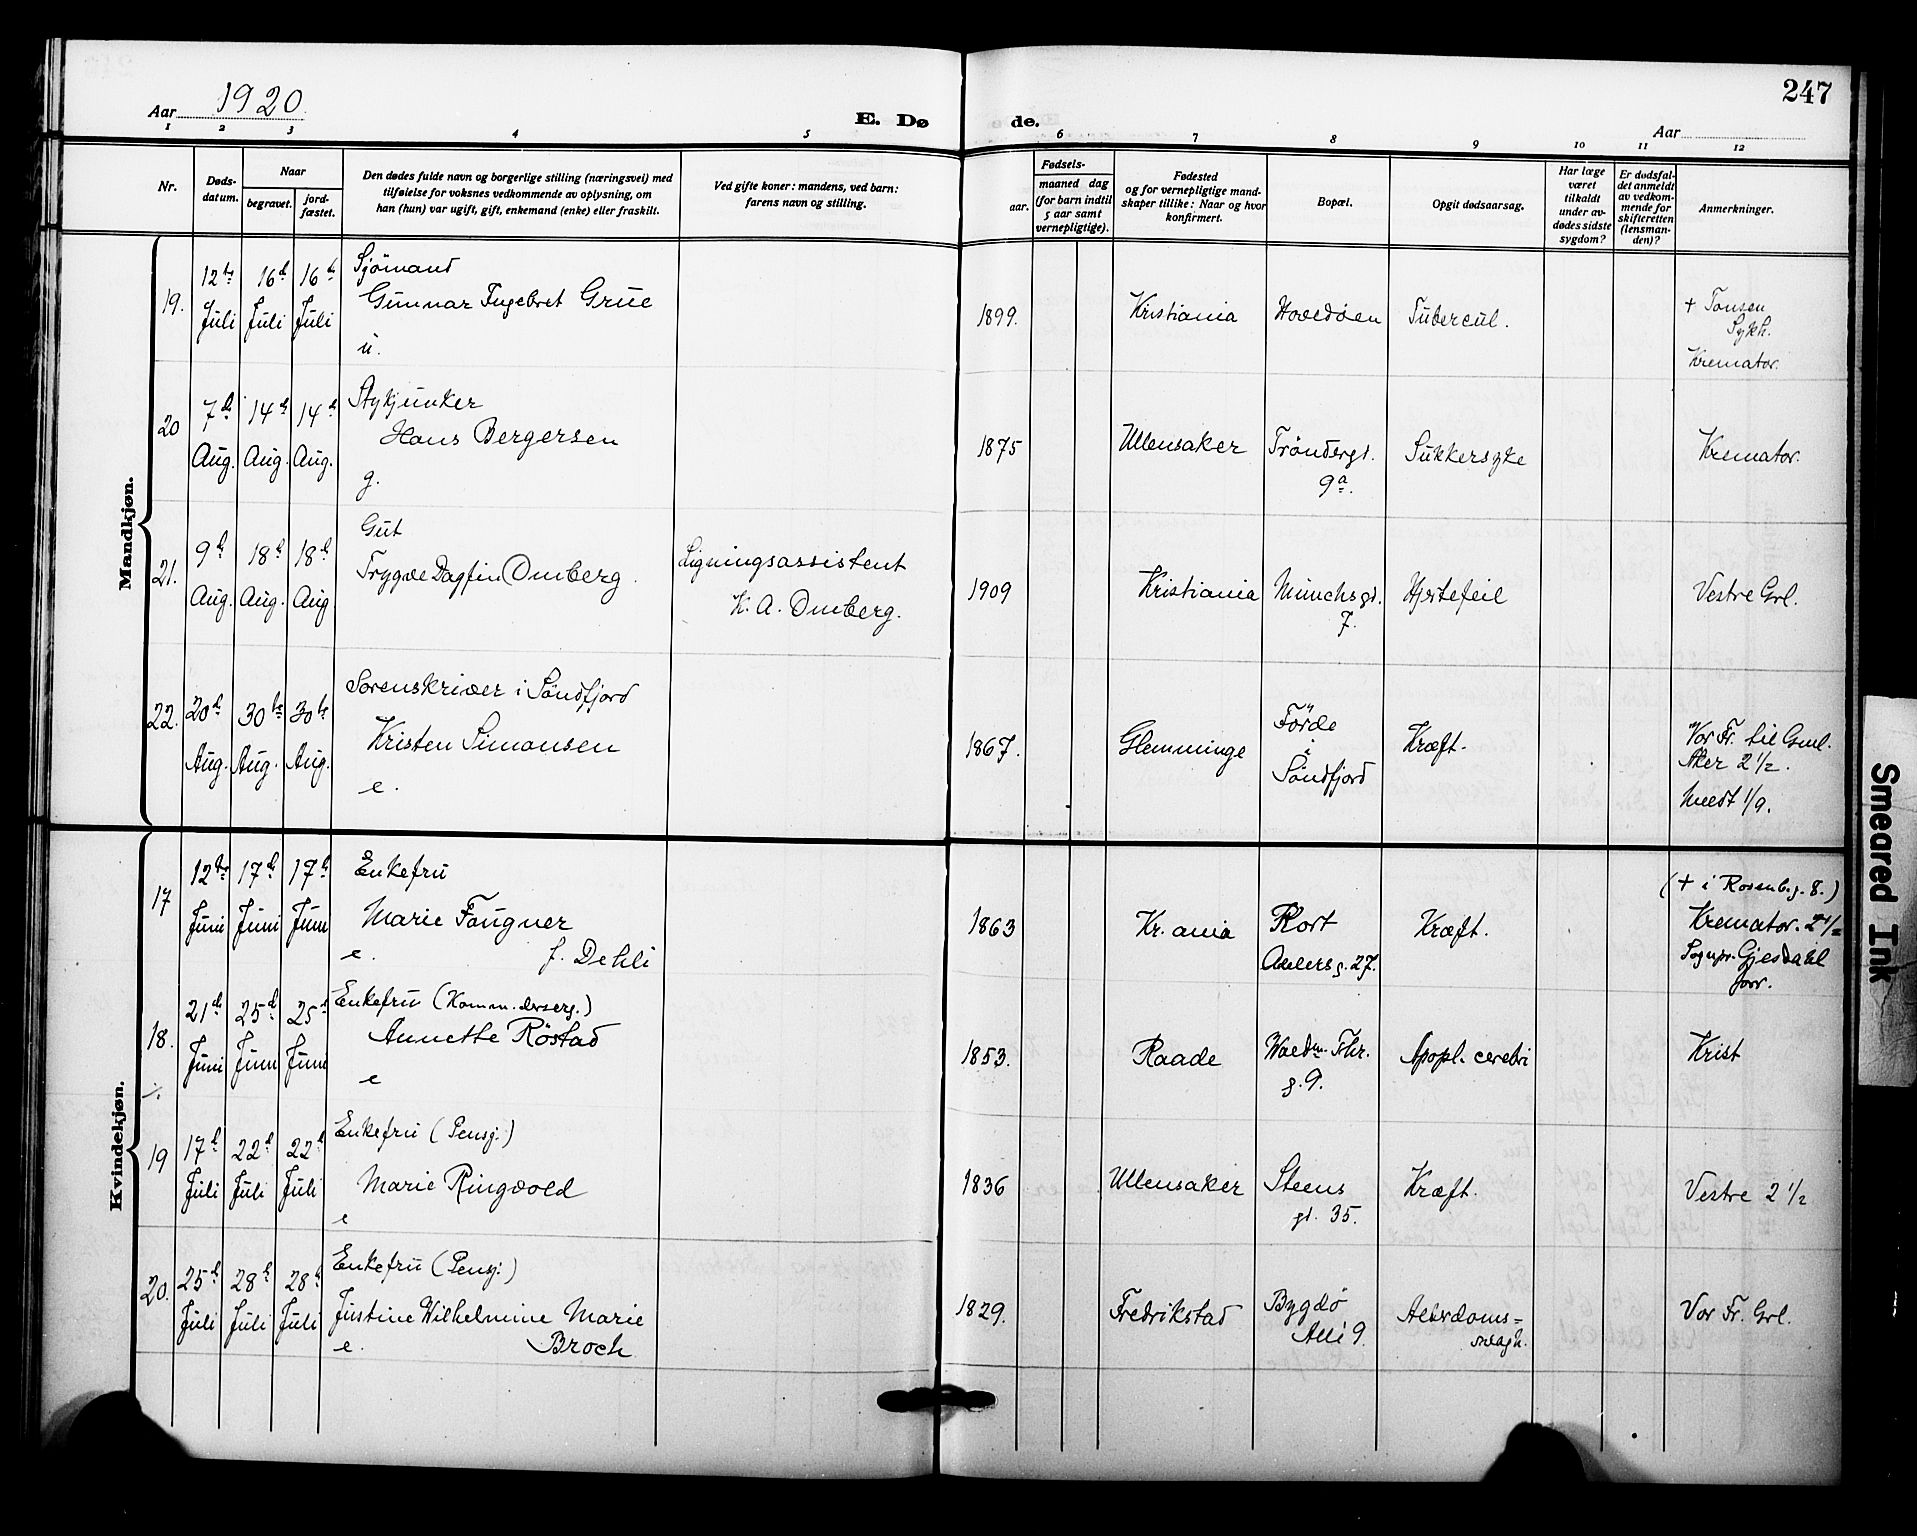 247
Aar 1920.
E. Dø de.
Aar
1 2 3 4 5 6 7 8 9 10 11 12
Nr.
Døds-
datum.
Naar
begravet.
jord-
fæstet.
Den dødes fulde navn og borgerlige stilling (næringsvei) med
tilføielse for voksnes vedkommende av oplysning, om
han (hun) var ugift, gift, enkemand (enke) eller fraskilt.
Ved gifte koner: mandens, ved barn:
farens navn og stilling.
Fødsels-
aar.
maaned dag
(for barn indtil
5 aar samt
vernepligtige).
Fødested
og for vernepligtige mand-
skaper tillike: Naar og hvor
konfirmert.
Bopæl.
Opgit dødsaarsag.
Har læge
været
tilkaldt
under av-
dødes sidste
sygdom?
Er dødsfal-
det anmeldt
av vedkom-
mende for
skifteretten
(lensman-
den)?
Anmerkninger.
Mandkjøn.
19.
12te
Juli
16d
Juli
16de
Juli
Sjömand
Gunnar Engebret Grue
u.
1899.
Kristiania
Hovedøen
Tubercul.
+ Tonsen
Sykh.
Kremator.
20
7d
Aug.
14d
Aug.
14d
Aug.
Stykjunker
Hans Bergersen
g.
1875
Ullensaker
Tröndergt.
9a.
Sukkersyke
Kremator.
21.
9d
Aug.
18d
Aug.
18d
Aug
Gut
Trygve Dagfin Omberg.
Ligningsassistent
K. A. Omberg.
1909
Kristiania
Munchsgt.
7.
Hjertefeil
Vestre Grl.
22.
20d
Aug.
30te
Aug.
30te
Aug.
Sorenskriver i Söndfjord
Kristen Simonsen
e.
1867.
Glemminge
Förde
i
Söndfjord
Kræft.
Vor Fr. til Gml.
Aker 2 1/2.
Meedt 1/9.
Kvindekjøn.
17
12te
Juni
17d
Juni
17d
Juni
Enkefru
Marie Fougner
e. f. Dehli
1863
Kr.ania
Kort
Adelersg. 27.
Kræft.
(+ i Rosenb.g. 8.)
Kremator. 2 1/2
Sognpr. Gjesdahl
forr.
18.
21d
Juni
25d
Juni
25d
Juni
Enkefru (Komm. dserg.)
Annette Röstad
e
1853.
Raade
Waldm. Thr.
g. 9.
Apopl. cerebri
Krist
19
17d
Juli
22d
Juli
22d
Juli
Enkefru (Pensj.)
Marie Ringvold
e
1836
Ullensaker
Steens
gt. 35.
Kræft.
Vestre 2 1/2
20.
25d
Juli
28d
Juli
28d
Juli
Enkefru (Pensj.)
Justine Wilhelmine Marie
e. Broch
1829.
Fredrikstad
Bygdö
Alle 9.
Alderdoms=
svagh.
Vor Fr. Grl.
Smeared Ink